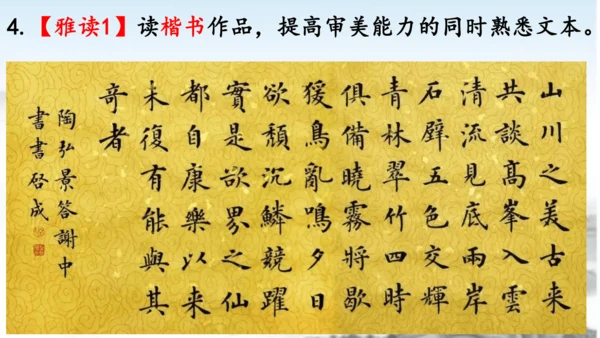 4.【雅读1】读楷书作品，提高审美能力的同时熟悉文本。
山川之美古来
共談髙峯入雲
清流見底兩岸
石壁五色交輝
青林翠竹四時
俱備曉霧將歇
猨鳥亂鳴夕日
欲頹沉鱗競躍
實是欲界之仙
都自康樂以来
未復有能與其
奇者
陶弘景答謝中
書書啓成